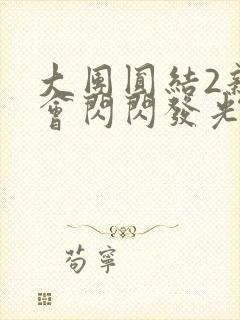 大團圓結2
會閃閃發光
苟寧